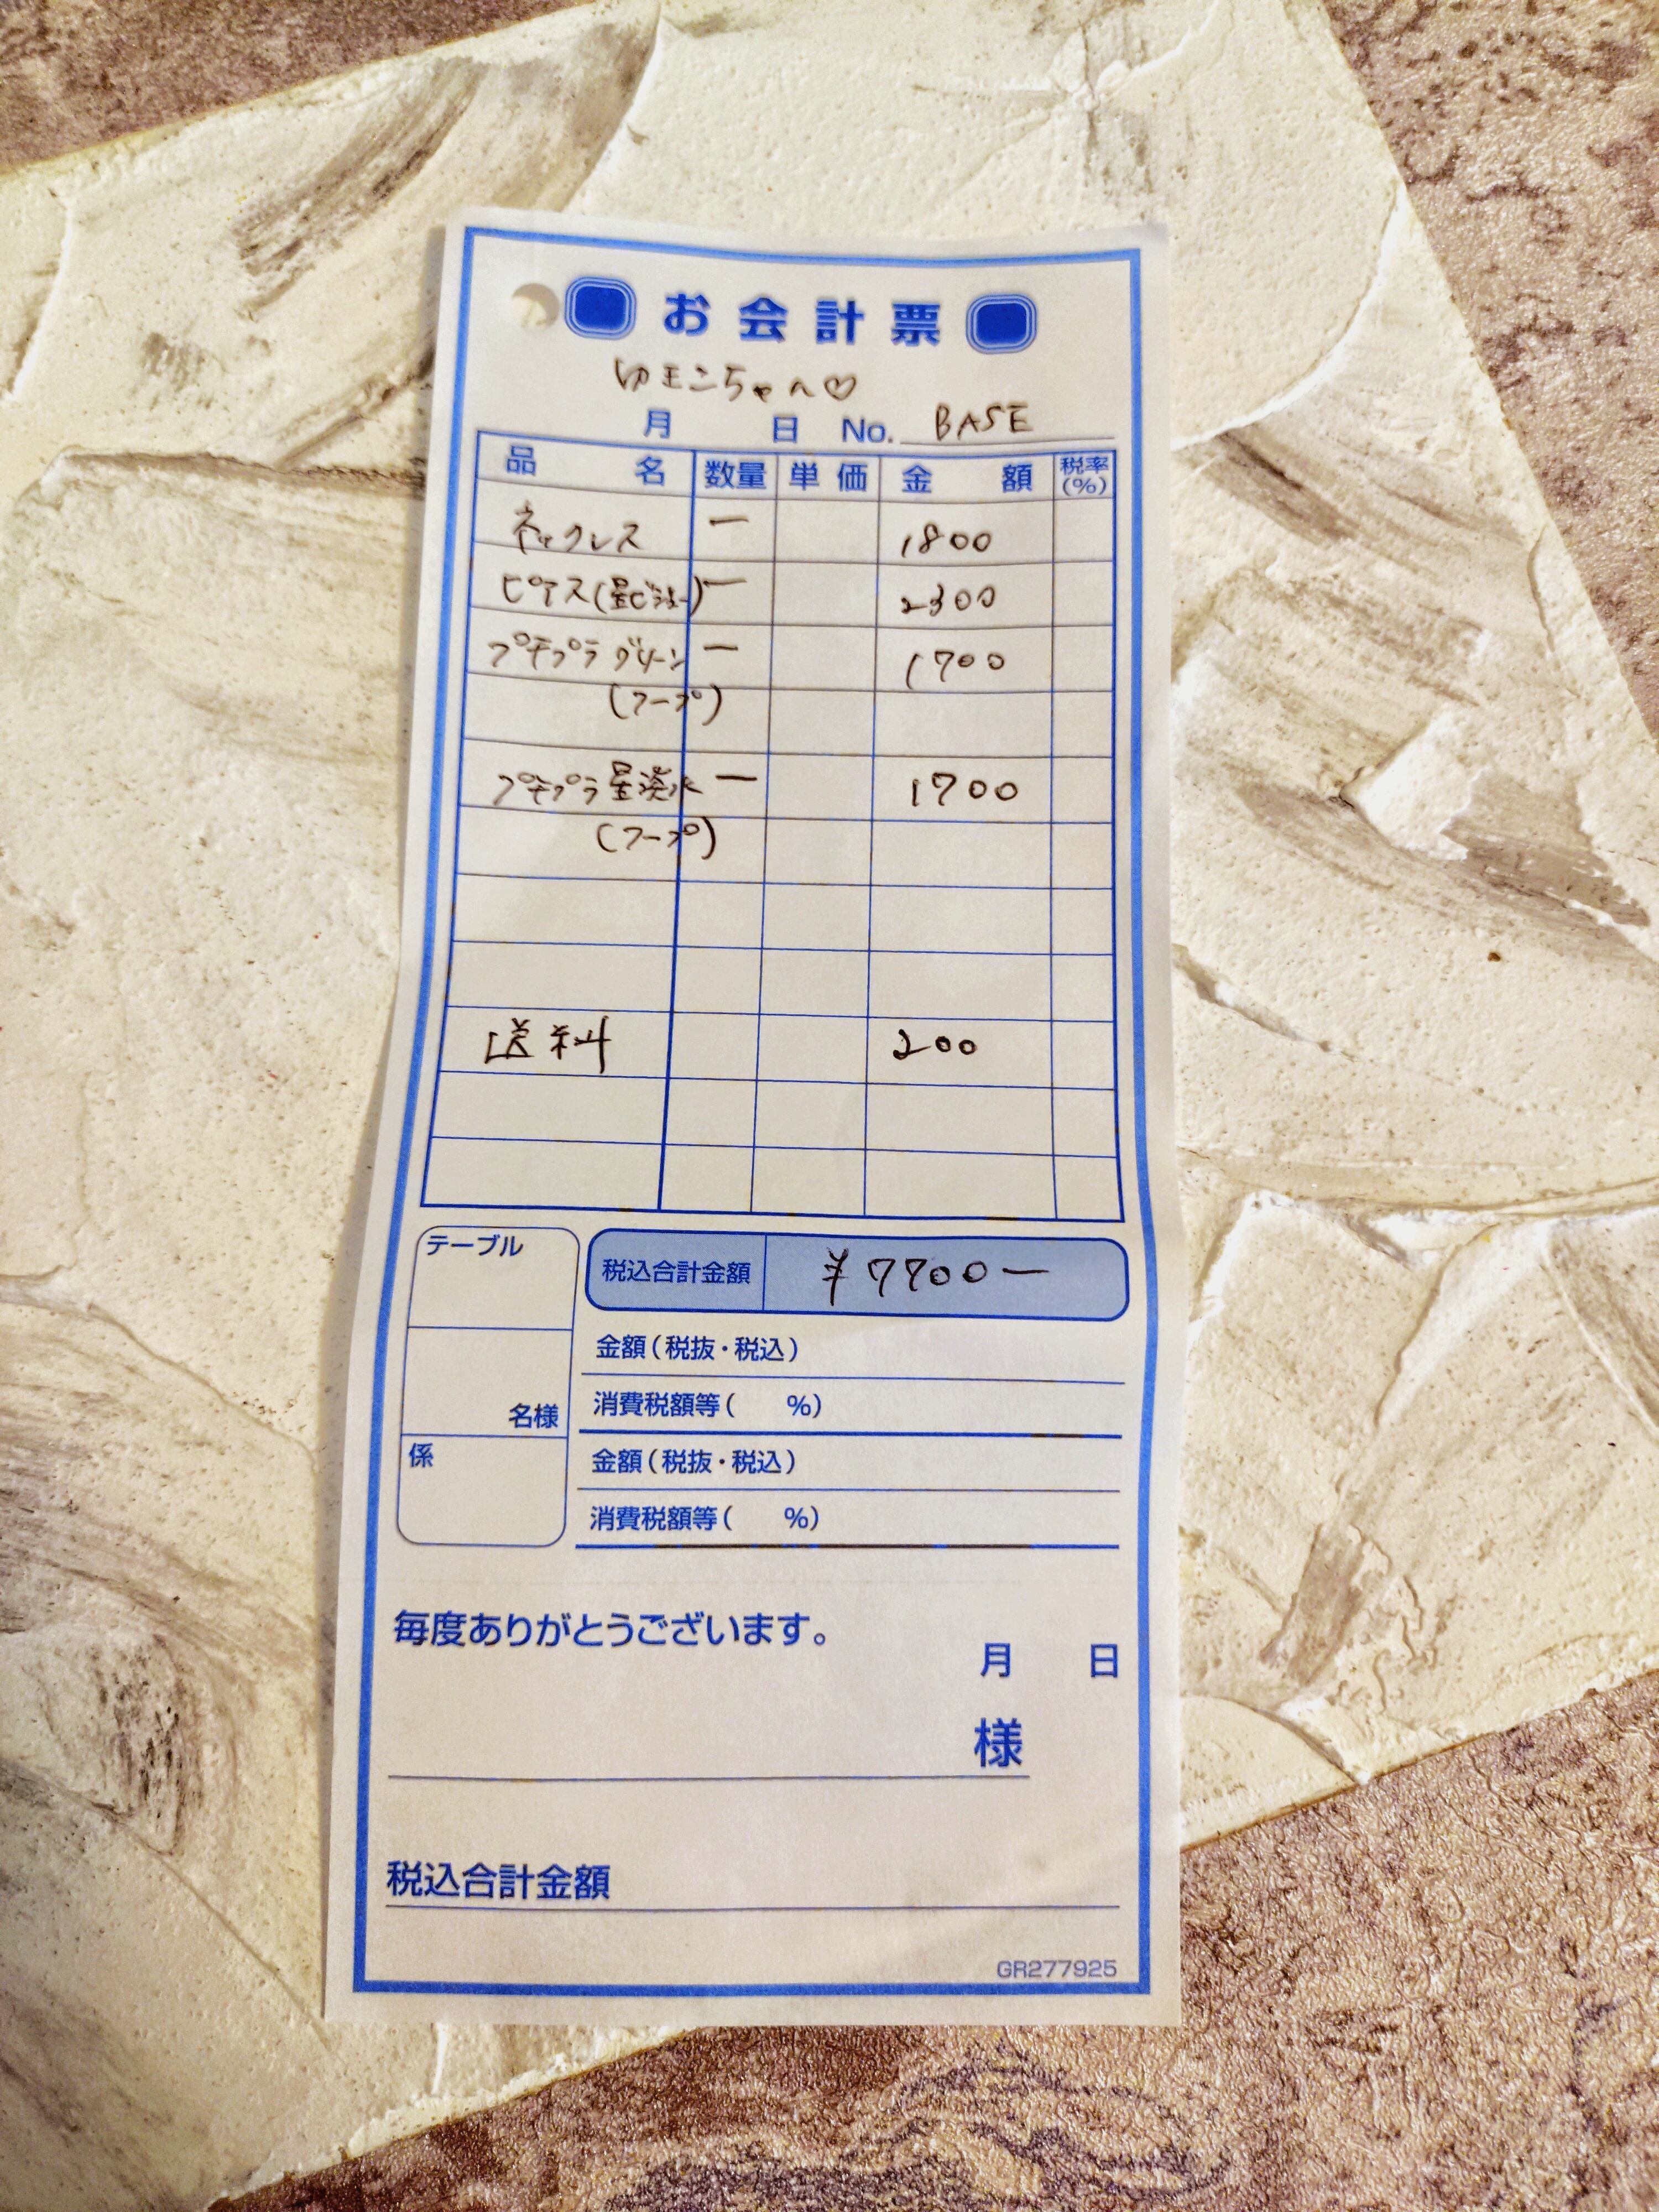 お会計票
ゆモンちゃん♡
月 日 No. BASE
品名 数量 単価 金額 税率(%)
ネックレス 一 1800
ピアス(星ビジュー) 一 2300
プチプラ グリーン 一 1700
(フープ)
プチプラ 星淡水 一 1700
(フープ)
送料 200
テーブル
税込合計金額 ¥7700ー
金額(税抜・税込)
消費税額等( %)
名様
金額(税抜・税込)
係
消費税額等( %)
毎度ありがとうございます。
月 日
様
税込合計金額
GR277925